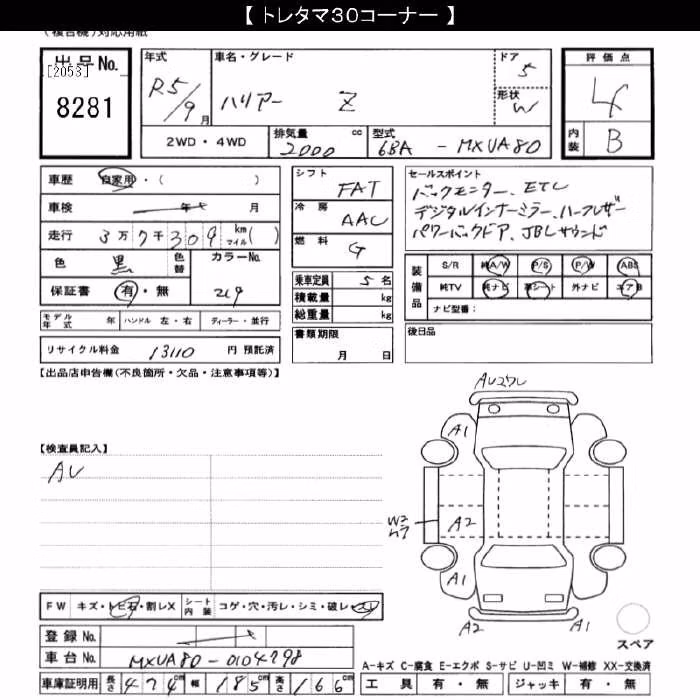 【 トレタマ30コーナー 】
(複合機)対応用紙
出品No.
[2053]
8281
年式
R5/9月
車名・グレード
ハリアー Z
ドア
5
形状
W
評価点
4
内装 B
2WD・4WD
排気量 cc
2000
型式
6BA - MXUA80
車歴 自家用・( )
車検 年 月
走行 3万7千309 km マイル( )
色 黒 色替
カラーNo.
219
保証書 有・無
シフト
FAT
冷房
AAC
燃料
G
乗車定員 5名
積載量 kg
総重量 kg
セールスポイント
バックモニター、ETC
デジタルインナーミラー、ハーフレザー
パワーバックドア、JBLサウンド
装備品
S/R 純A/W P/S P/W ABS
純TV 純ナビ 革シート 外ナビ エアB
ナビ型番:
モデル年式 年 ハンドル 左・右 ディーラー・並行
リサイクル料金 13110 円 預託済
書類期限
月 日
後日品
【出品店申告欄(不良箇所・欠品・注意事項等)】
【検査員記入】
AU
AU
A1
W2
A2
A1
A2
A1
スペア
FW キズ・トビ石・割レX シート内装 コゲ・穴・汚レ・シミ・破レ・スレ
登録No.
車台No. MXUA80-0104798
車庫証明用 長さ 474cm 幅 185cm 高さ 166cm
A-キズ C-腐食 E-エクボ S-サビ U-凹ミ W-補修 XX-交換済
工具 有・無 ジャッキ 有・無